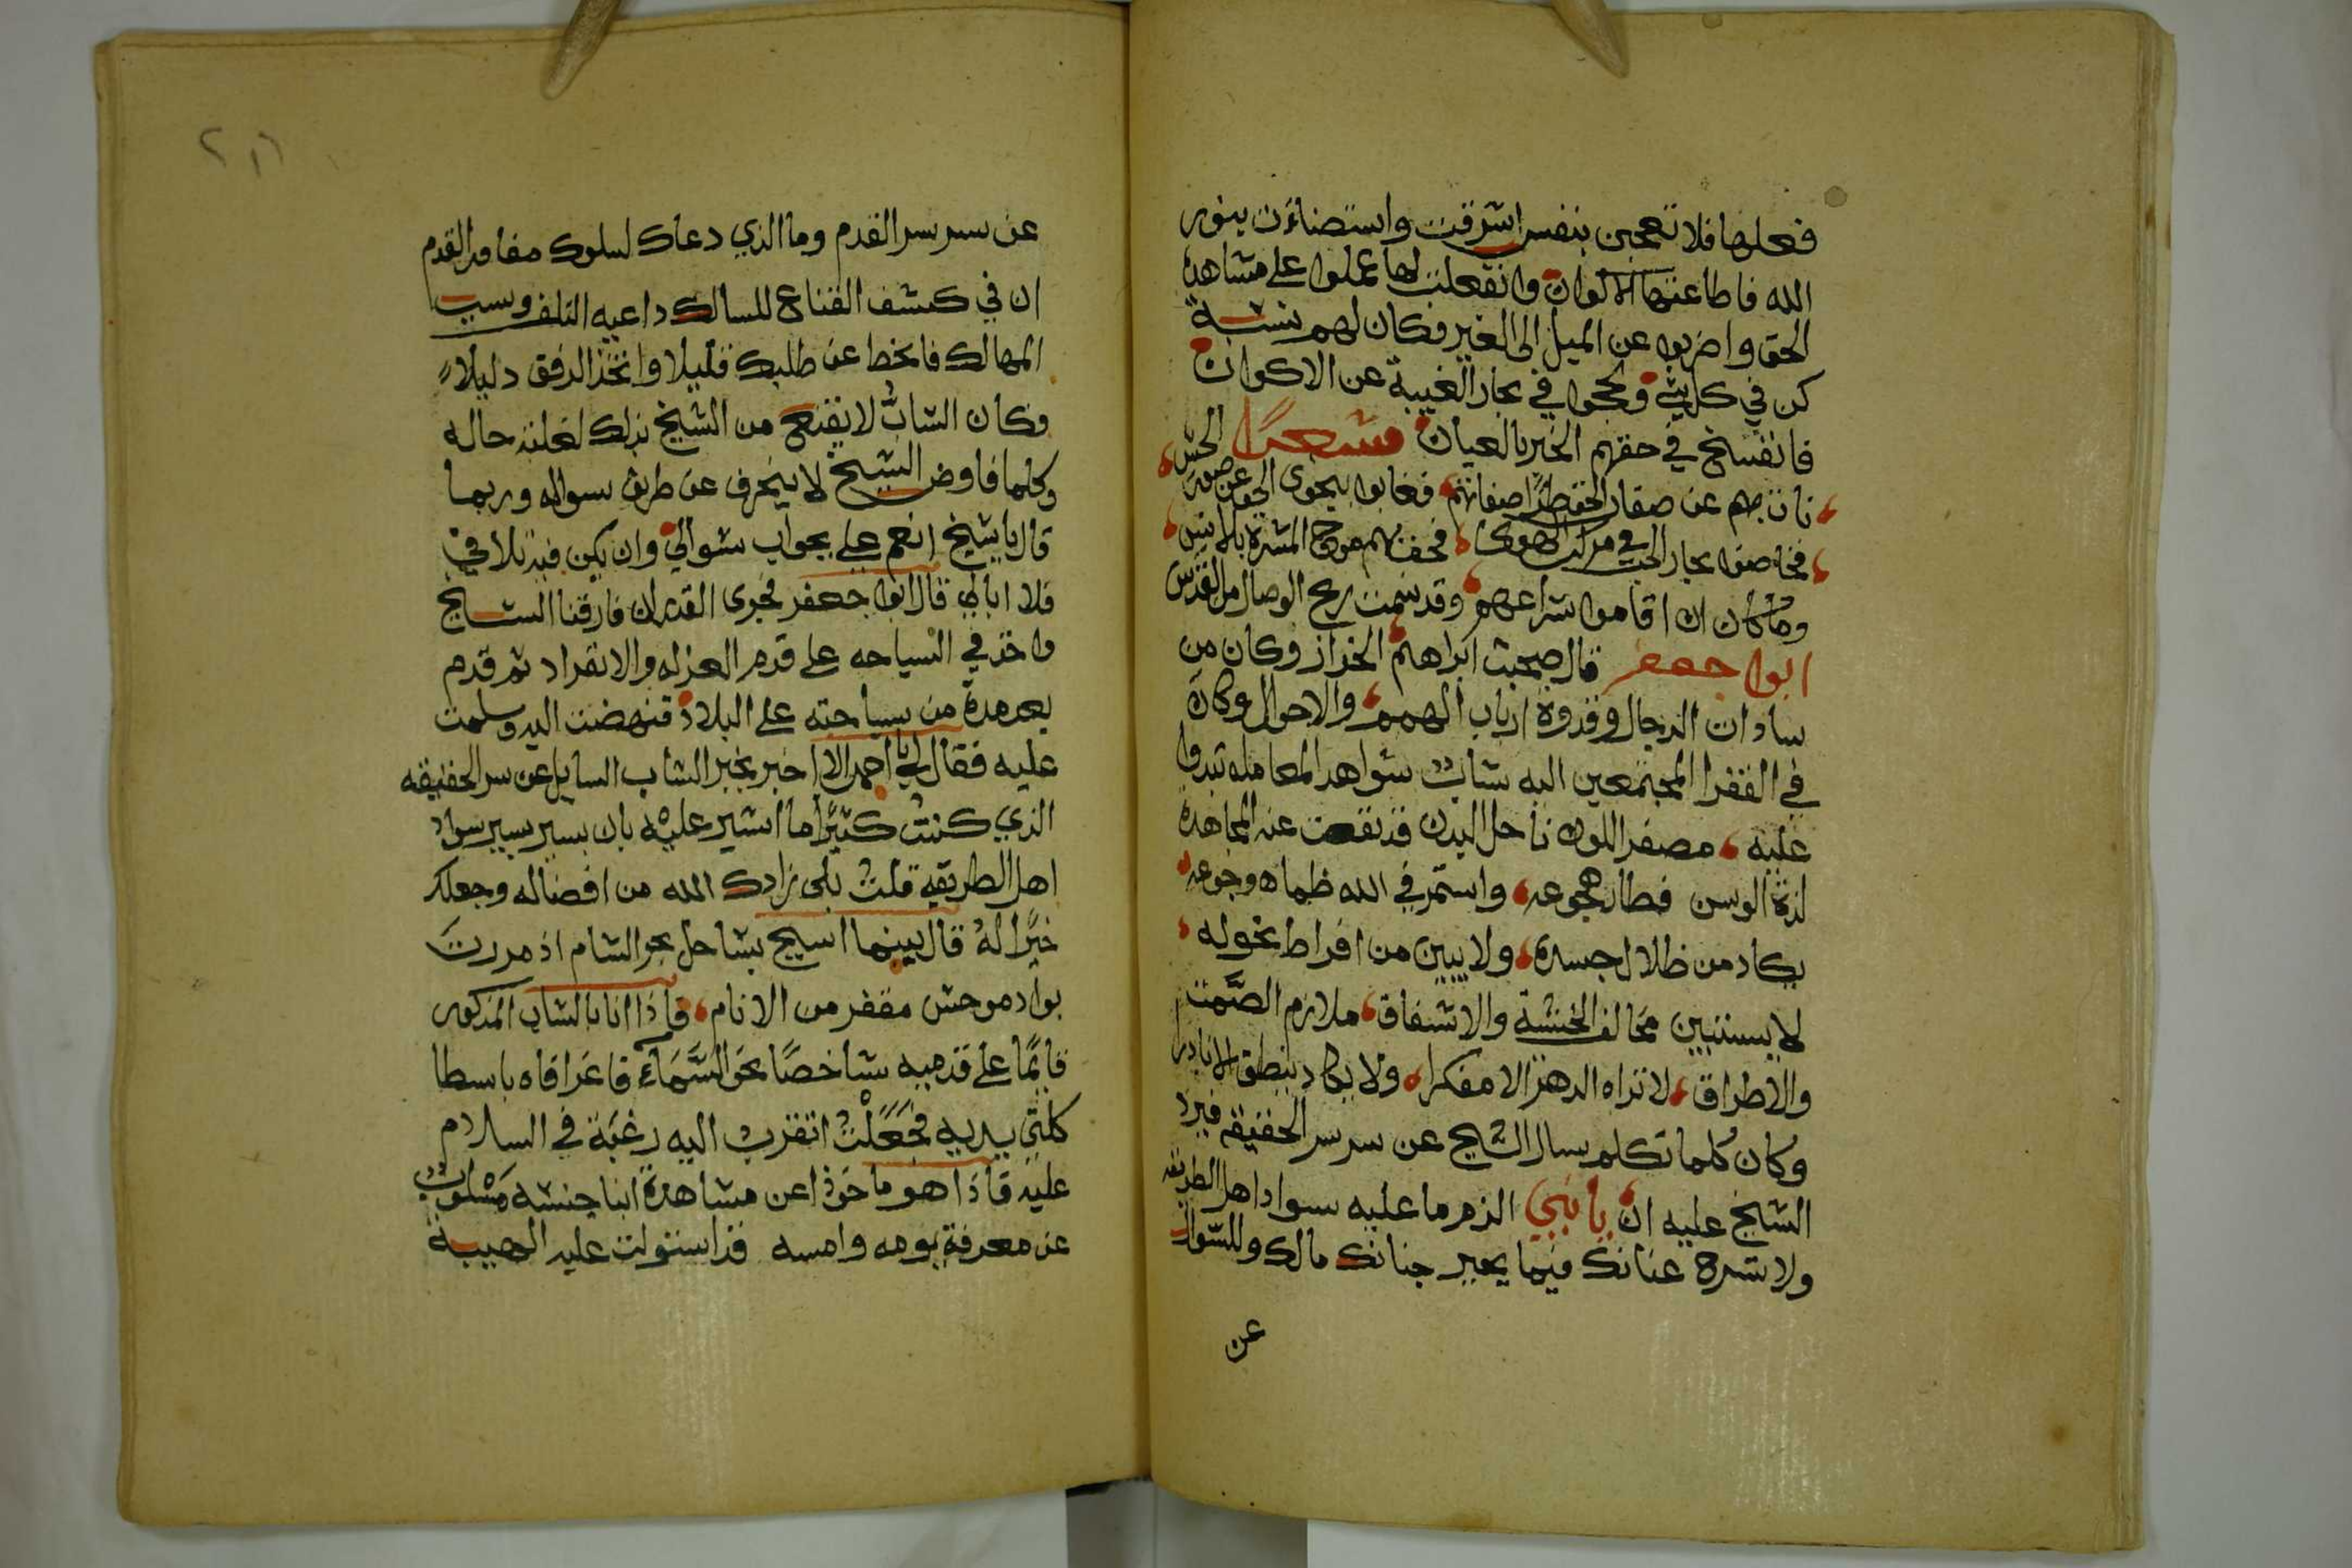 فعلها فلا تعجبن بنفس اشرقت واستضاءت بنور
الله فاطاعتها الاكوان وانفعلت لها عملوا على مشاهدة
الحق واضربوا عن الميل الى الغير فكان لهم نسبة
كن في كل شيء ولججوا في بحار الغيبة عن الاكوان
فانفسخ في حقهم الخبر بالعيان شعرا
نات بهم عن صفات الحق طرا صفاتهم فغابوا بنجوى الحق عن صورة الحس
فخاضوا بحار الحب في مركب الهوى فحف بهم موج المسرة بالانس
وما كان ان اقاموا شراعهم وقد نسمت ريح الوصال من القدس
ابوا جعفر قال صحبت ابراهيم الخراز وكان من
سادات الرجال وقدوة ارباب الهمم والاحوال وكان
في الفقرا المجتمعين اليه شاب شواهد المعامله تبدوا
عليه مصفر اللون ناحل البدن قد نفت عنه المجاهدة
لذة الوسن فطار هجوعه واستمر في الله ظماه وجوعه
يكاد من ظلال جسده ولا يبين من افراط نحوله
لا يستبين مخالف الخشية والاشفاق ملازم الصمت
والاطراق لا تراه الدهر الا مفكرا ولا يكاد ينطق الا نادرا
وكان كلما تكلم سال الشيخ عن سر سر الحقيقه فيرد
الشيخ عليه ان يا بني الزم ما عليه سواد اهل الطريقه
ولا تسرح عنانك فيما يحير جنانك مالك وللسوال
عن
عن سر سر القدم وما الذي دعاك لسلوك مفاوز القدم
ان في كشف القناع للسالك داعيه التلف وسبب
المهالك فانحط عن طلبك قليلا واتخذ الرفق دليلا
وكان الشاب لا يقنع من الشيخ بذلك لغلبة حاله
وكلما فاوض الشيخ لا ينحرف عن طريق سواله وربما
قال يا شيخ انعم علي بجواب سوالي وان يكن فيه تلافي
فلا ابالي قال ابوا جعفر فجرى القدر ان فارقنا الشيخ
واخذ في السياحه على قدم العزله والانفراد ثم قدم
بعد مدة من سياحته على البلاد فنهضت اليه وسلمت
عليه فقال لي يا احمد الا اخبر بخبر الشاب السايل عن سر الحقيقه
الذي كنت كثيرا ما اشير عليه بان يسير بسير سواد
اهل الطريقه قلت بلى زادك الله من افضاله وجعلك
خيرا له قال بينما اسيح بساحل بحر الشام اذ مررت
بواد موحش مقفر من الانام فاذا انا بالشاب المذكور
قايما على قدميه شاخصا نحو السماء فاغرا فاه باسطا
كلتي يديه فجعلت اتقرب اليه رغبة في السلام
عليه فاذا هو ماخوذا عن مشاهدة ابنا جنسه مسلوب
عن معرفة يومه وامسه قد استولت عليه الهيبة